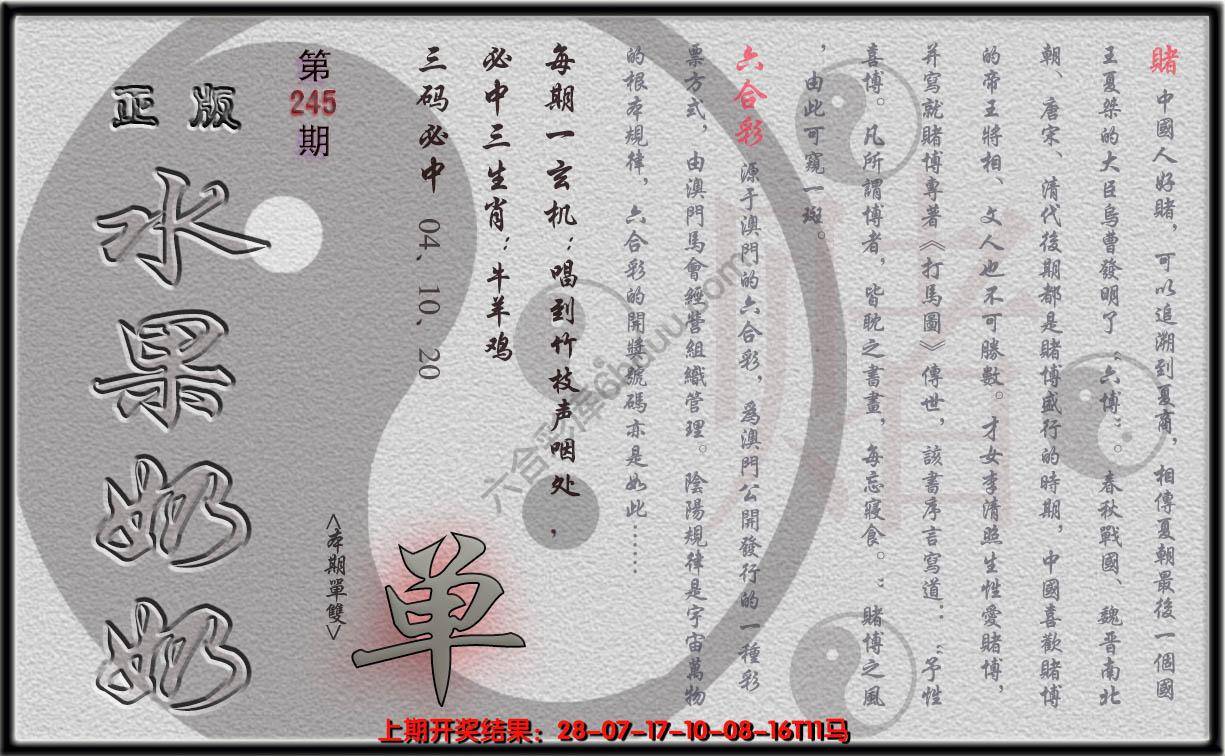 賭 中國人好賭，可以追溯到夏商，相傳夏朝最後一個國
王夏桀的大臣烏曹發明了“六博”。春秋戰國、魏晋南北
朝、唐宋、清代後期都是賭博盛行的時期，中國喜歡賭博
的帝王將相、文人也不可勝數。才女李清照生性愛賭博，
并寫就賭博專著《打馬圖》傳世，該書序言寫道：“予性
喜博。凡所謂博者，皆耽之書畫，每忘寢食。”賭博之風
，由此可窺一斑。
六合彩 源于澳門的六合彩，爲澳門公開發行的一種彩
票方式，由澳門馬會經營組織管理。陰陽規律是宇宙萬物
的根本規律，六合彩的開獎號碼亦是如此……
每期一玄机：唱到竹枝声咽处，
必中三生肖：牛羊鸡
三码必中 04、10、20
第
245
期
正版
水果奶奶
<本期單雙>
单
上期开奖结果：28-07-17-10-08-16T11马
賭